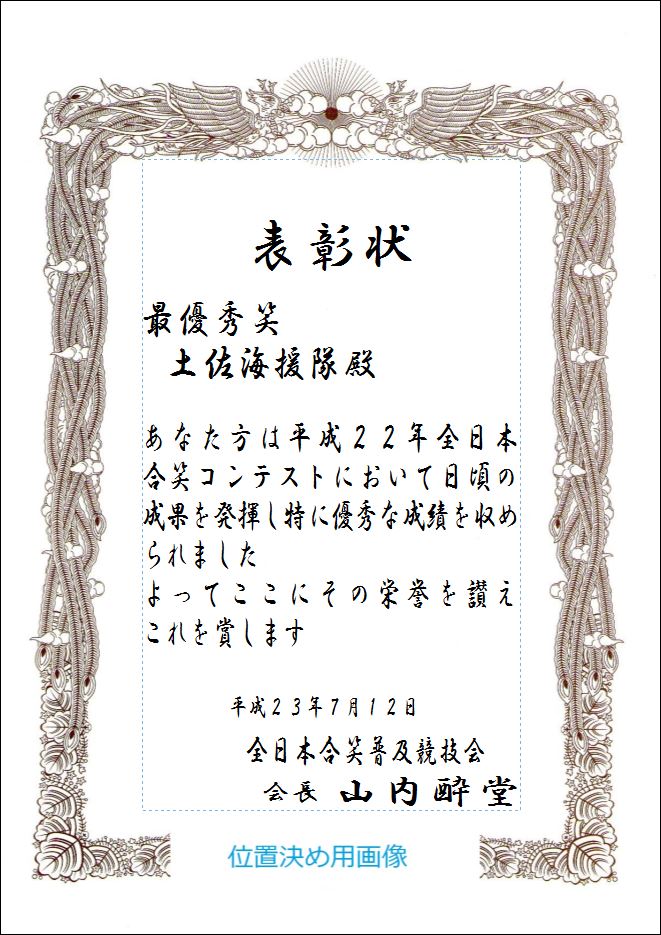 表彰状
最優秀笑
土佐海援隊殿
あなた方は平成２２年全日本
合笑コンテストにおいて日頃の
成果を発揮し特に優秀な成績を収め
られました
よってここにその栄誉を讃え
これを賞します
平成２３年７月１２日
全日本合笑普及競技会
会長 山内酔堂
位置決め用画像